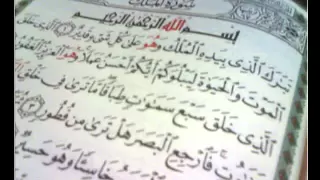 سورة الملك
بسم الله الرحمن الرحيم
تبرك الذي بيده الملك وهو على كل شيء قدير الذي خلق
الموت والحيوة ليبلوكم أيكم أحسن عملا وهو العزيز الغفور
الذي خلق سبع سموت طباقا ما ترى في خلق
فارجع البصر هل ترى من فطور
خاسئا وهو حسير